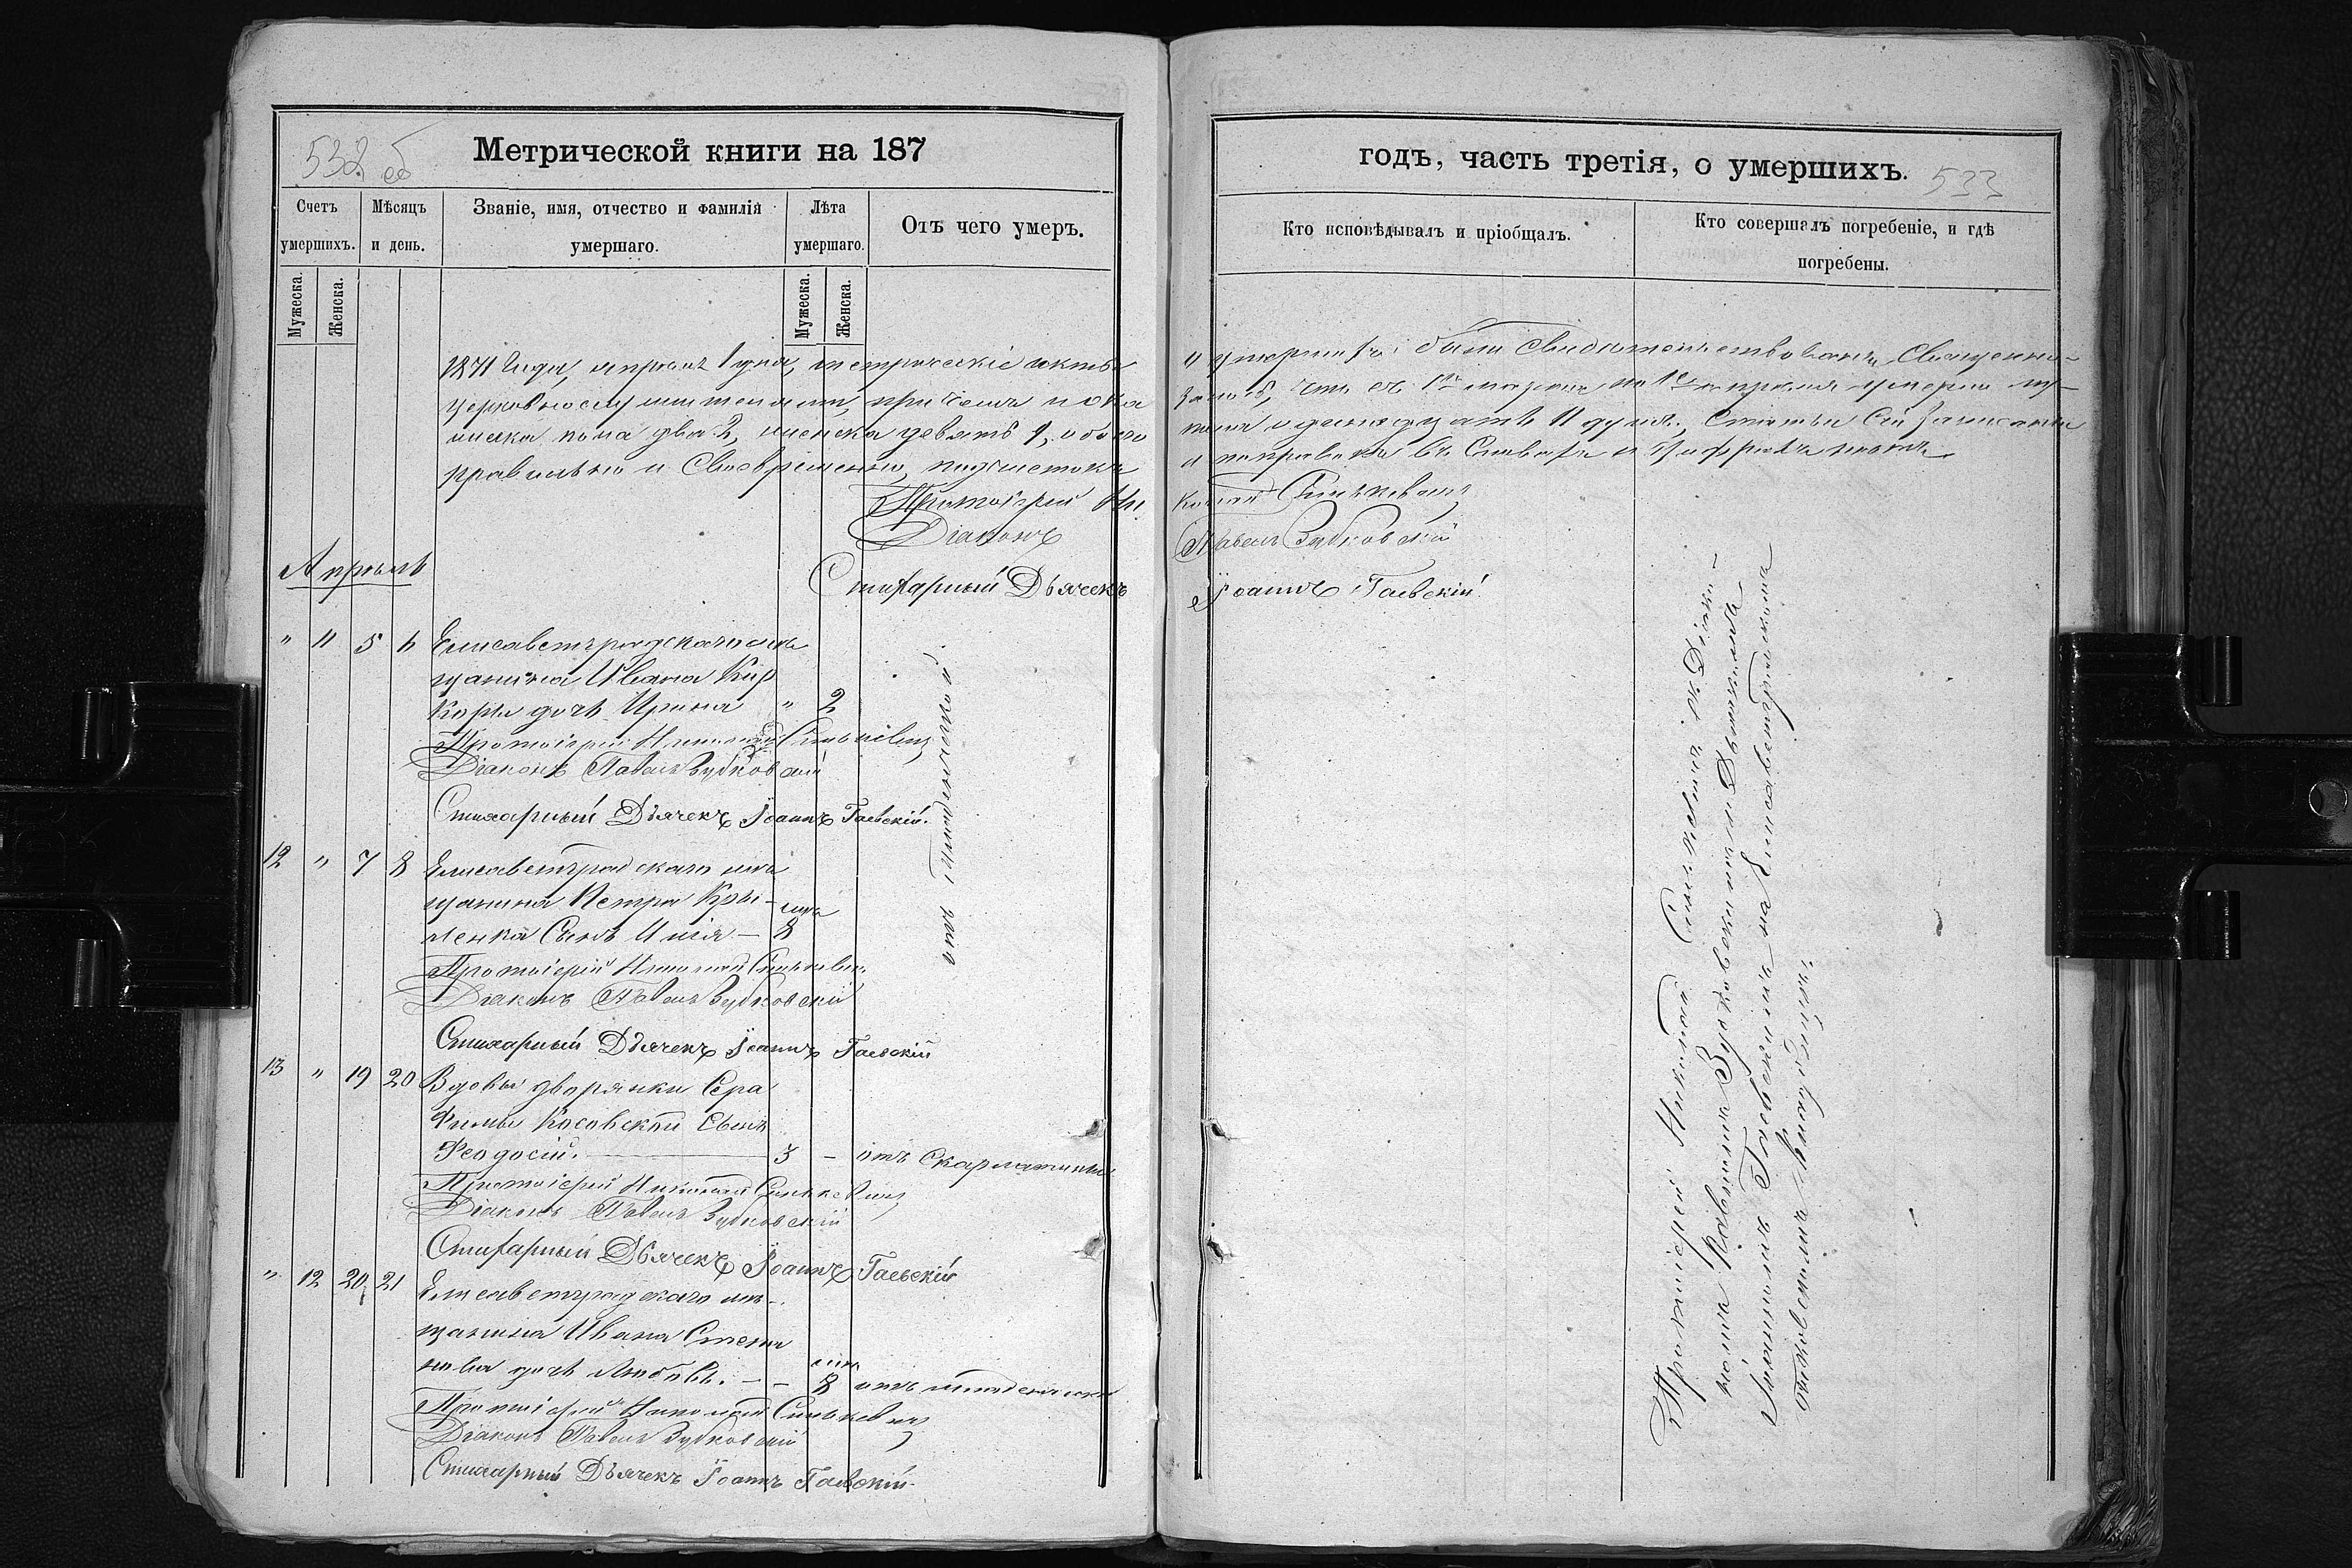 532 об
Метрической книги на 187
Счетъ умершихъ.
Мѣсяцъ и день.
Званіе, имя, отчество и фамилія умершаго.
Лѣта умершаго.
Отъ чего умеръ.
Мужеска.
Женска.
Мужеска.
Женска.
1871 года, апреля 1 дня, метрическіе акты
церковнослужителями, при чемъ пока
мужеска пола два 2, женска девять 9, обоего
правильно и своевременно, подчистокъ
Протоіерей Ни
Діаконъ
Стихарный Дьячекъ
Апрѣль
" 11 5 6 Елисаветградскаго мѣ
щанина Ивана Кир
дочь Ирина " 2
Протоіерей Николай Синькевичъ
Діаконъ Павелъ Зубковскій
Стихарный Дьячекъ Іоаннъ Гаевскій.
12 " 7 8 Елисаветградскаго мѣ
щанина Петра Кры-
ленка Сынъ Илія — 8
Протоіерей Николай Синькевичъ
Діаконъ Павелъ Зубковскій
Стихарный Дьячекъ Іоаннъ Гаевскій
13 " 19 20 Вдовы дворянки Сера
фимы Косовской Сынъ
Феодосій. — 3 — отъ Скарлатины
Протоіерей Николай Синькевичъ
Діаконъ Павелъ Зубковскій
Стихарный Дьячекъ Іоаннъ Гаевскій
" 12 20 21 Елисаветградскаго мѣ-
щанина Ивана Степа
нова дочь Любовь. — — 8 отъ младенческой
Протоіерей Николай Синькевичъ
Діаконъ Павелъ Зубковскій
Стихарный Дьячекъ Іоаннъ Гаевскій.
отъ младенческой
годъ, часть третія, о умершихъ.
533
Кто исповѣдывалъ и пріобщалъ.
Кто совершалъ погребеніе, и гдѣ погребены.
о умершихъ были свидетельствованы Священно-
зано, что съ 1го марта по 1е апреля умерло му-
одинадцать 11 душъ, Статьи Сіи записаны
и поправокъ въ Словахъ и Цифрахъ нѣтъ.
колай Синькевичъ
Павелъ Зубковскій
Іоаннъ Гаевскій
Протоіерей Николай Синькевичъ съ Діако-
номъ Павломъ Зубковскимъ и Дьячкомъ
Іоанномъ Гаевскимъ на Елисаветградскомъ
кладбищѣ.